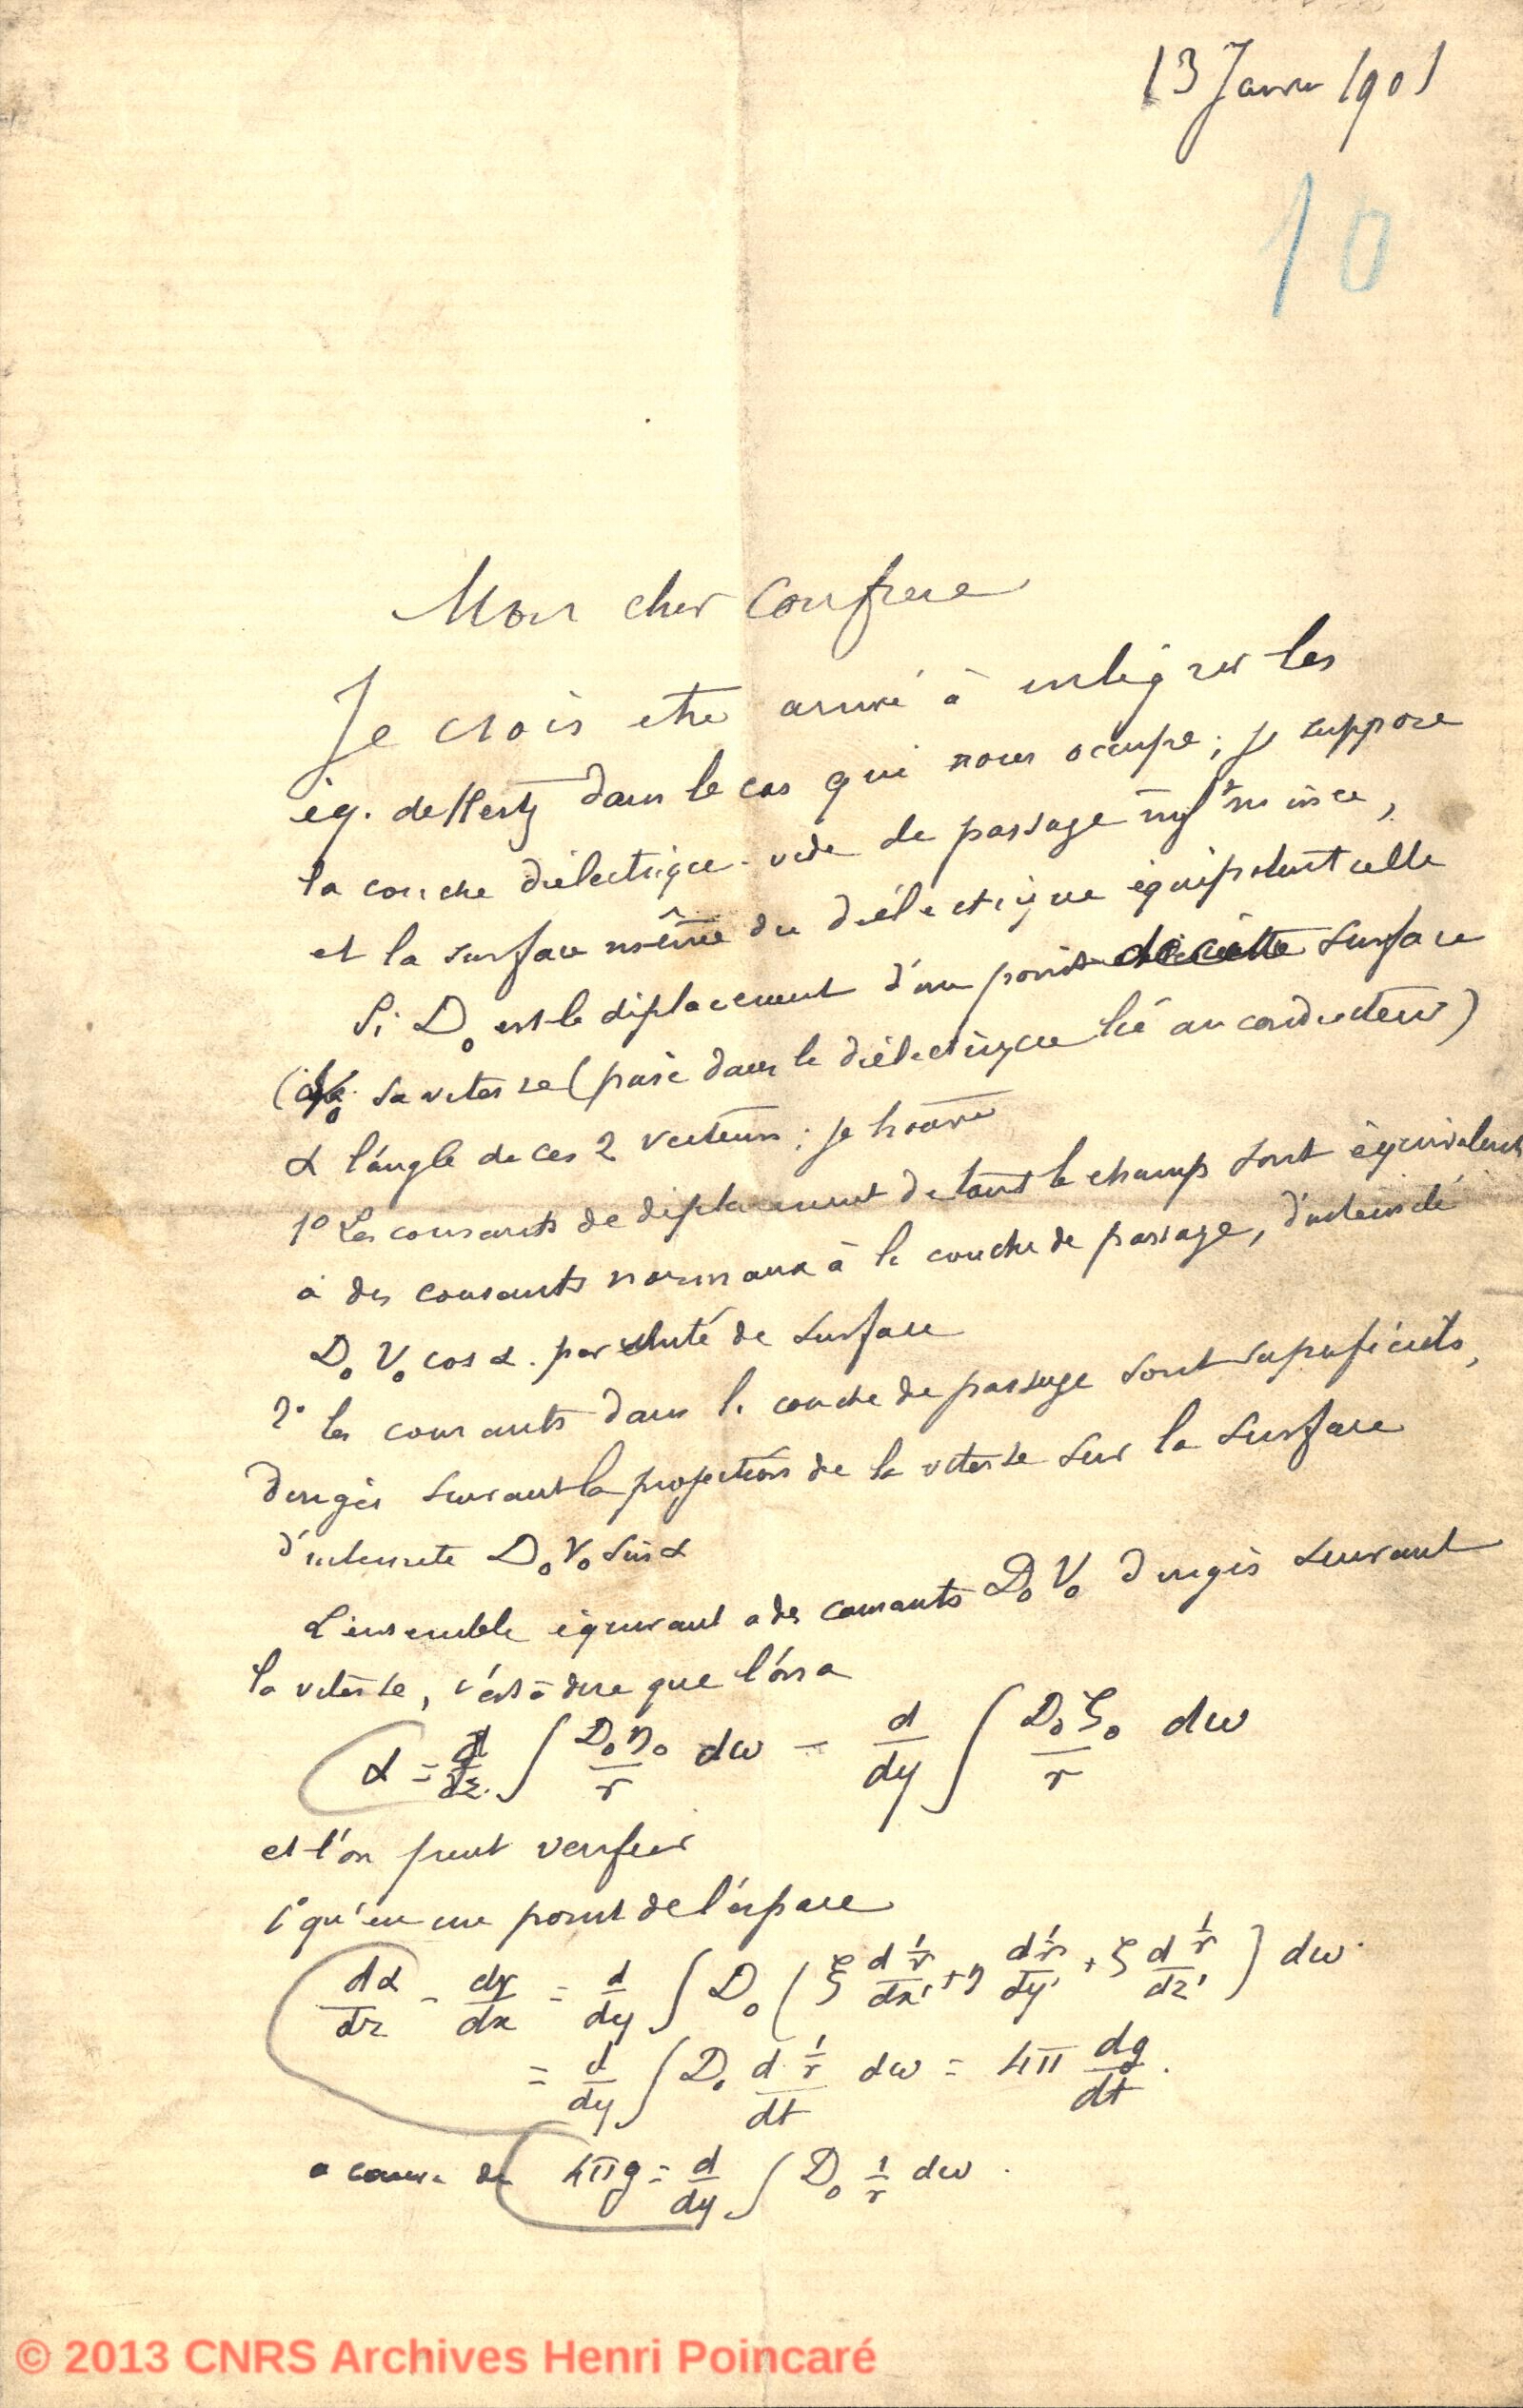 13 Janvier 1901
10
Mon cher Confrere
Je crois etre arrivé à intégrer les
éq. de Hertz dans le cas qui nous occupe ; je suppose
la couche diélectrique-vide de passage infᵗ mince,
et la surface même du diélectrique équipotentielle
Si D₀ est le déplacement d'un point de cette surface
V₀ sa vitesse (prise dans le diélectrique lié au conducteur)
α l'angle de ces 2 vecteurs ; je trouve
1° Les courants de déplacement de tout le champ sont équivalents
à des courants normaux à la couche de passage, d'intensité
D₀ V₀ cos α. par unité de surface
2° les courants dans la couche de passage sont superficiels,
dirigés suivant la projection de la vitesse sur la surface
d'intensite D₀ V₀ sin α
L'ensemble équivaut a des courants D₀ V₀ dirigés suivant
la vitesse, c'est à dire que l'on a
α = d/dz ∫ D₀η₀/r dω − d/dy ∫ D₀ζ₀/r dω
et l'on peut verifier
1° qu'en un point de l'espace
dα/dz − dγ/dx = d/dy ∫ D₀ (ξ d 1/r / dx' + η d 1/r / dy' + ζ d 1/r / dz') dω.
= d/dy ∫ D₀ d 1/r / dt dω = 4π dg/dt.
a cause de 4πg = d/dy ∫ D₀ 1/r dω.
© 2013 CNRS Archives Henri Poincaré